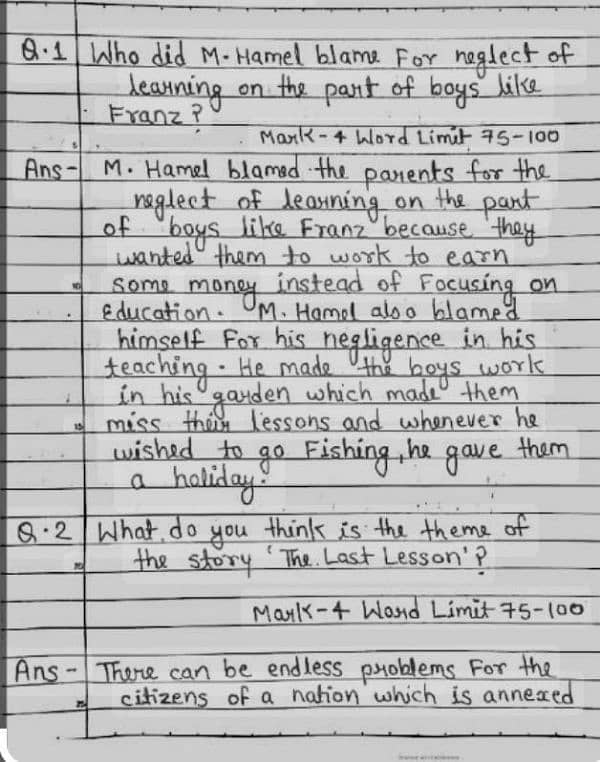 Q.1 Who did M. Hamel blame For neglect of
learning on the part of boys like
Franz ?
Mark - 4 Word Limit 75-100
Ans - M. Hamel blamed the parents for the
neglect of learning on the part
of boys like Franz because they
wanted them to work to earn
some money instead of Focusing on
Education. M. Hamel also blamed
himself For his negligence in his
teaching. He made the boys work
in his garden which made them
miss their lessons and whenever he
wished to go Fishing, he gave them
a holiday.
Q.2 What do you think is the theme of
the story 'The Last Lesson'?
Mark - 4 Word Limit 75-100
Ans - There can be endless problems For the
citizens of a nation which is annexed